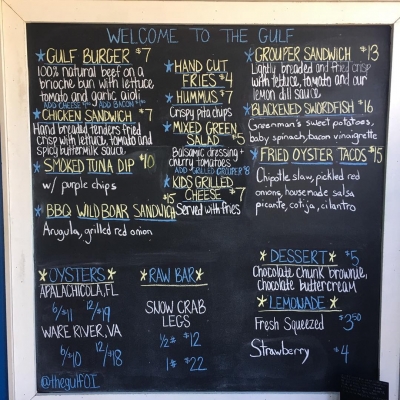 WELCOME TO THE GULF
GULF BURGER $7
100% natural beef on a
brioche bun with lettuce,
tomato and garlic aioli
ADD CHEESE ADD BACON
CHICKEN SANDWICH $7
Hand breaded tenders fried
crisp with lettuce, tomato and
spicy buttermilk sauce
SMOKED TUNA DIP $10
w/ purple chips
BBQ WILD BOAR SANDWICH $15
Arugula, grilled red onion
HAND CUT
FRIES $4
HUMMUS $7
Crispy pita chips
MIXED GREEN
SALAD $5
Balsamic dressing +
cherry tomatoes
ADD GRILLED GROUPER $8
KIDS GRILLED
CHEESE $7
Served with fries
GROUPER SANDWICH $13
Lightly breaded and fried crisp
with lettuce, tomato and our
lemon dill sauce
BLACKENED SWORDFISH $16
Greenman's sweet potatoes,
baby spinach, bacon vinaigrette
FRIED OYSTER TACOS $15
Chipotle slaw, pickled red
onions, housemade salsa
picante, cotija, cilantro
OYSTERS
APALACHICOLA, FL
6/$11 12/$19
WARE RIVER, VA
6/$10 12/$18
@thegulfOI
RAW BAR
SNOW CRAB
LEGS
1/2# $12
1# $22
DESSERT $5
Chocolate chunk brownie,
chocolate buttercream
LEMONADE
Fresh Squeezed $3.50
Strawberry $4